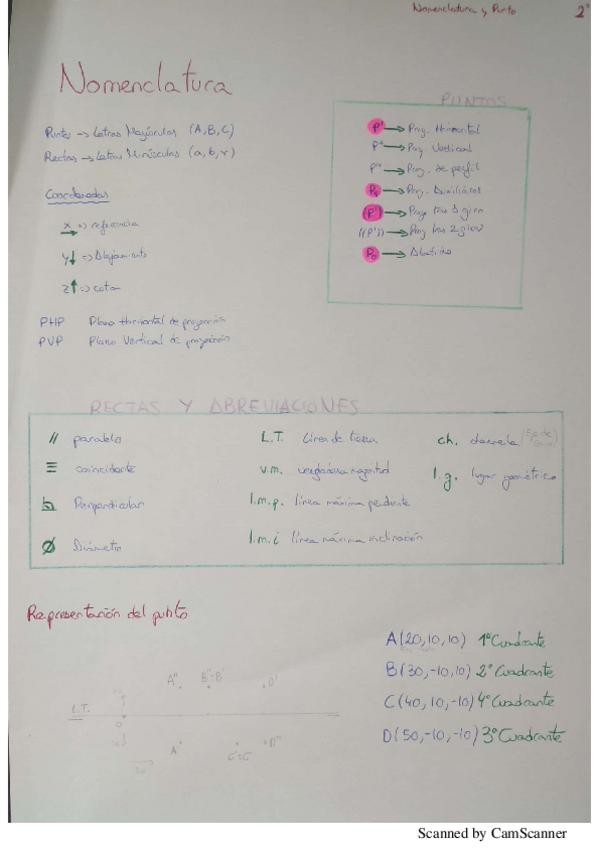 Nomenclatura y Punto 2º
Nomenclatura
Puntos → Letras Mayúsculas (A, B, C)
Rectas → Letras Minúsculas (a, b, r)
Coordenadas
x → referencia
y ↓ => Alejamiento
z ↑ => cota
PHP Plano Horizontal de proyección
PVP Plano Vertical de proyección
PUNTOS
P' → Proy. Horizontal
P'' → Proy Vertical
P''' → Proy. de perfil
→ Proy. Auxiliares
(P') → Proy tras 1 giro
((P')) → Proy tras 2 giros
P₀ → Abatido
RECTAS Y ABREVIACIONES
// paralelo
≡ coincidente
Perpendicular
Ø Diámetro
L.T. Línea de tierra
v.m. verdadera magnitud
l.m.p. línea máxima pendiente
l.m.i línea máxima inclinación
ch. charnela
l.g. lugar geométrico
Representación del punto
A(20,10,10) 1º Cuadrante
B(30,-10,10) 2º Cuadrante
C(40,10,-10) 4º Cuadrante
D(50,-10,-10) 3º Cuadrante
A'' B''≡B' D'
L.T.
0
A' D''
Scanned by CamScanner